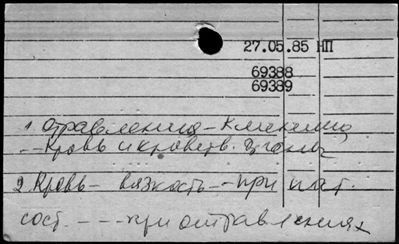 27.05.85 НП
69388
69389
1. Отравления – Клиника
– – Кровь и кроветв.
2. Кровь – вязкость – – при пат.
сост. – – – при отравлениях